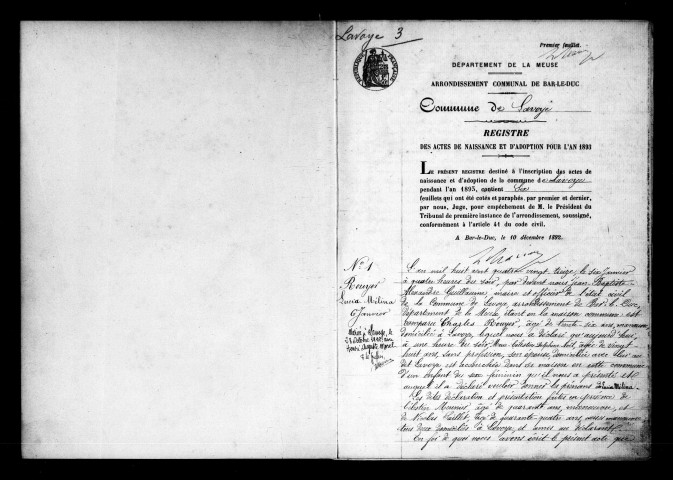 Lavoye 3
Premier feuillet.
DÉPARTEMENT DE LA MEUSE
ARRONDISSEMENT COMMUNAL DE BAR-LE-DUC
Commune de Lavoye
REGISTRE
DES ACTES DE NAISSANCE ET D'ADOPTION POUR L'AN 1893
LE PRÉSENT REGISTRE destiné à l'inscription des actes de
naissance et d'adoption de la commune de Lavoye
pendant l'an 1893, contient six
feuillets qui ont été cotés et paraphés, par premier et dernier,
par nous, Juge, pour empêchement de M. le Président du
Tribunal de première instance de l'arrondissement, soussigné,
conformément à l'article 41 du code civil.
A Bar-le-Duc, le 10 décembre 1892.
N° 1
Rouyer
Lucia Mélina
6 Janvier
L'an mil huit cent quatre vingt treize, le six Janvier
à quatre heures du soir, par devant nous Jean Baptiste
Alexandre Guillaume, maire et officier de l'état civil
de la Commune de Lavoye, arrondissement de Bar le Duc,
département de la Meuse, étant en la maison commune est
comparu Charles Rouyer, âgé de trente six ans, manouvrier
domicilié à Lavoye, lequel nous a déclaré qu'aujourd'hui,
à une heure du soir, âgée de vingt
huit ans, sans profession, son épouse, domiciliée avec lui au
dit Lavoye est accouchée dans sa maison en cette commune
d'un enfant du sexe féminin qu'il nous a présenté et
auquel il a déclaré vouloir donner les prénoms Lucia Mélina
Les dites déclaration et présentation faites en présence de
Célestin âgé de quarante ans manouvrier, et
de Nicolas âgé de quarante-quatre ans, aussi manouvrier
tous deux domiciliés à Lavoye, et amis au déclarant.
En foi de quoi nous avons écrit le présent acte que